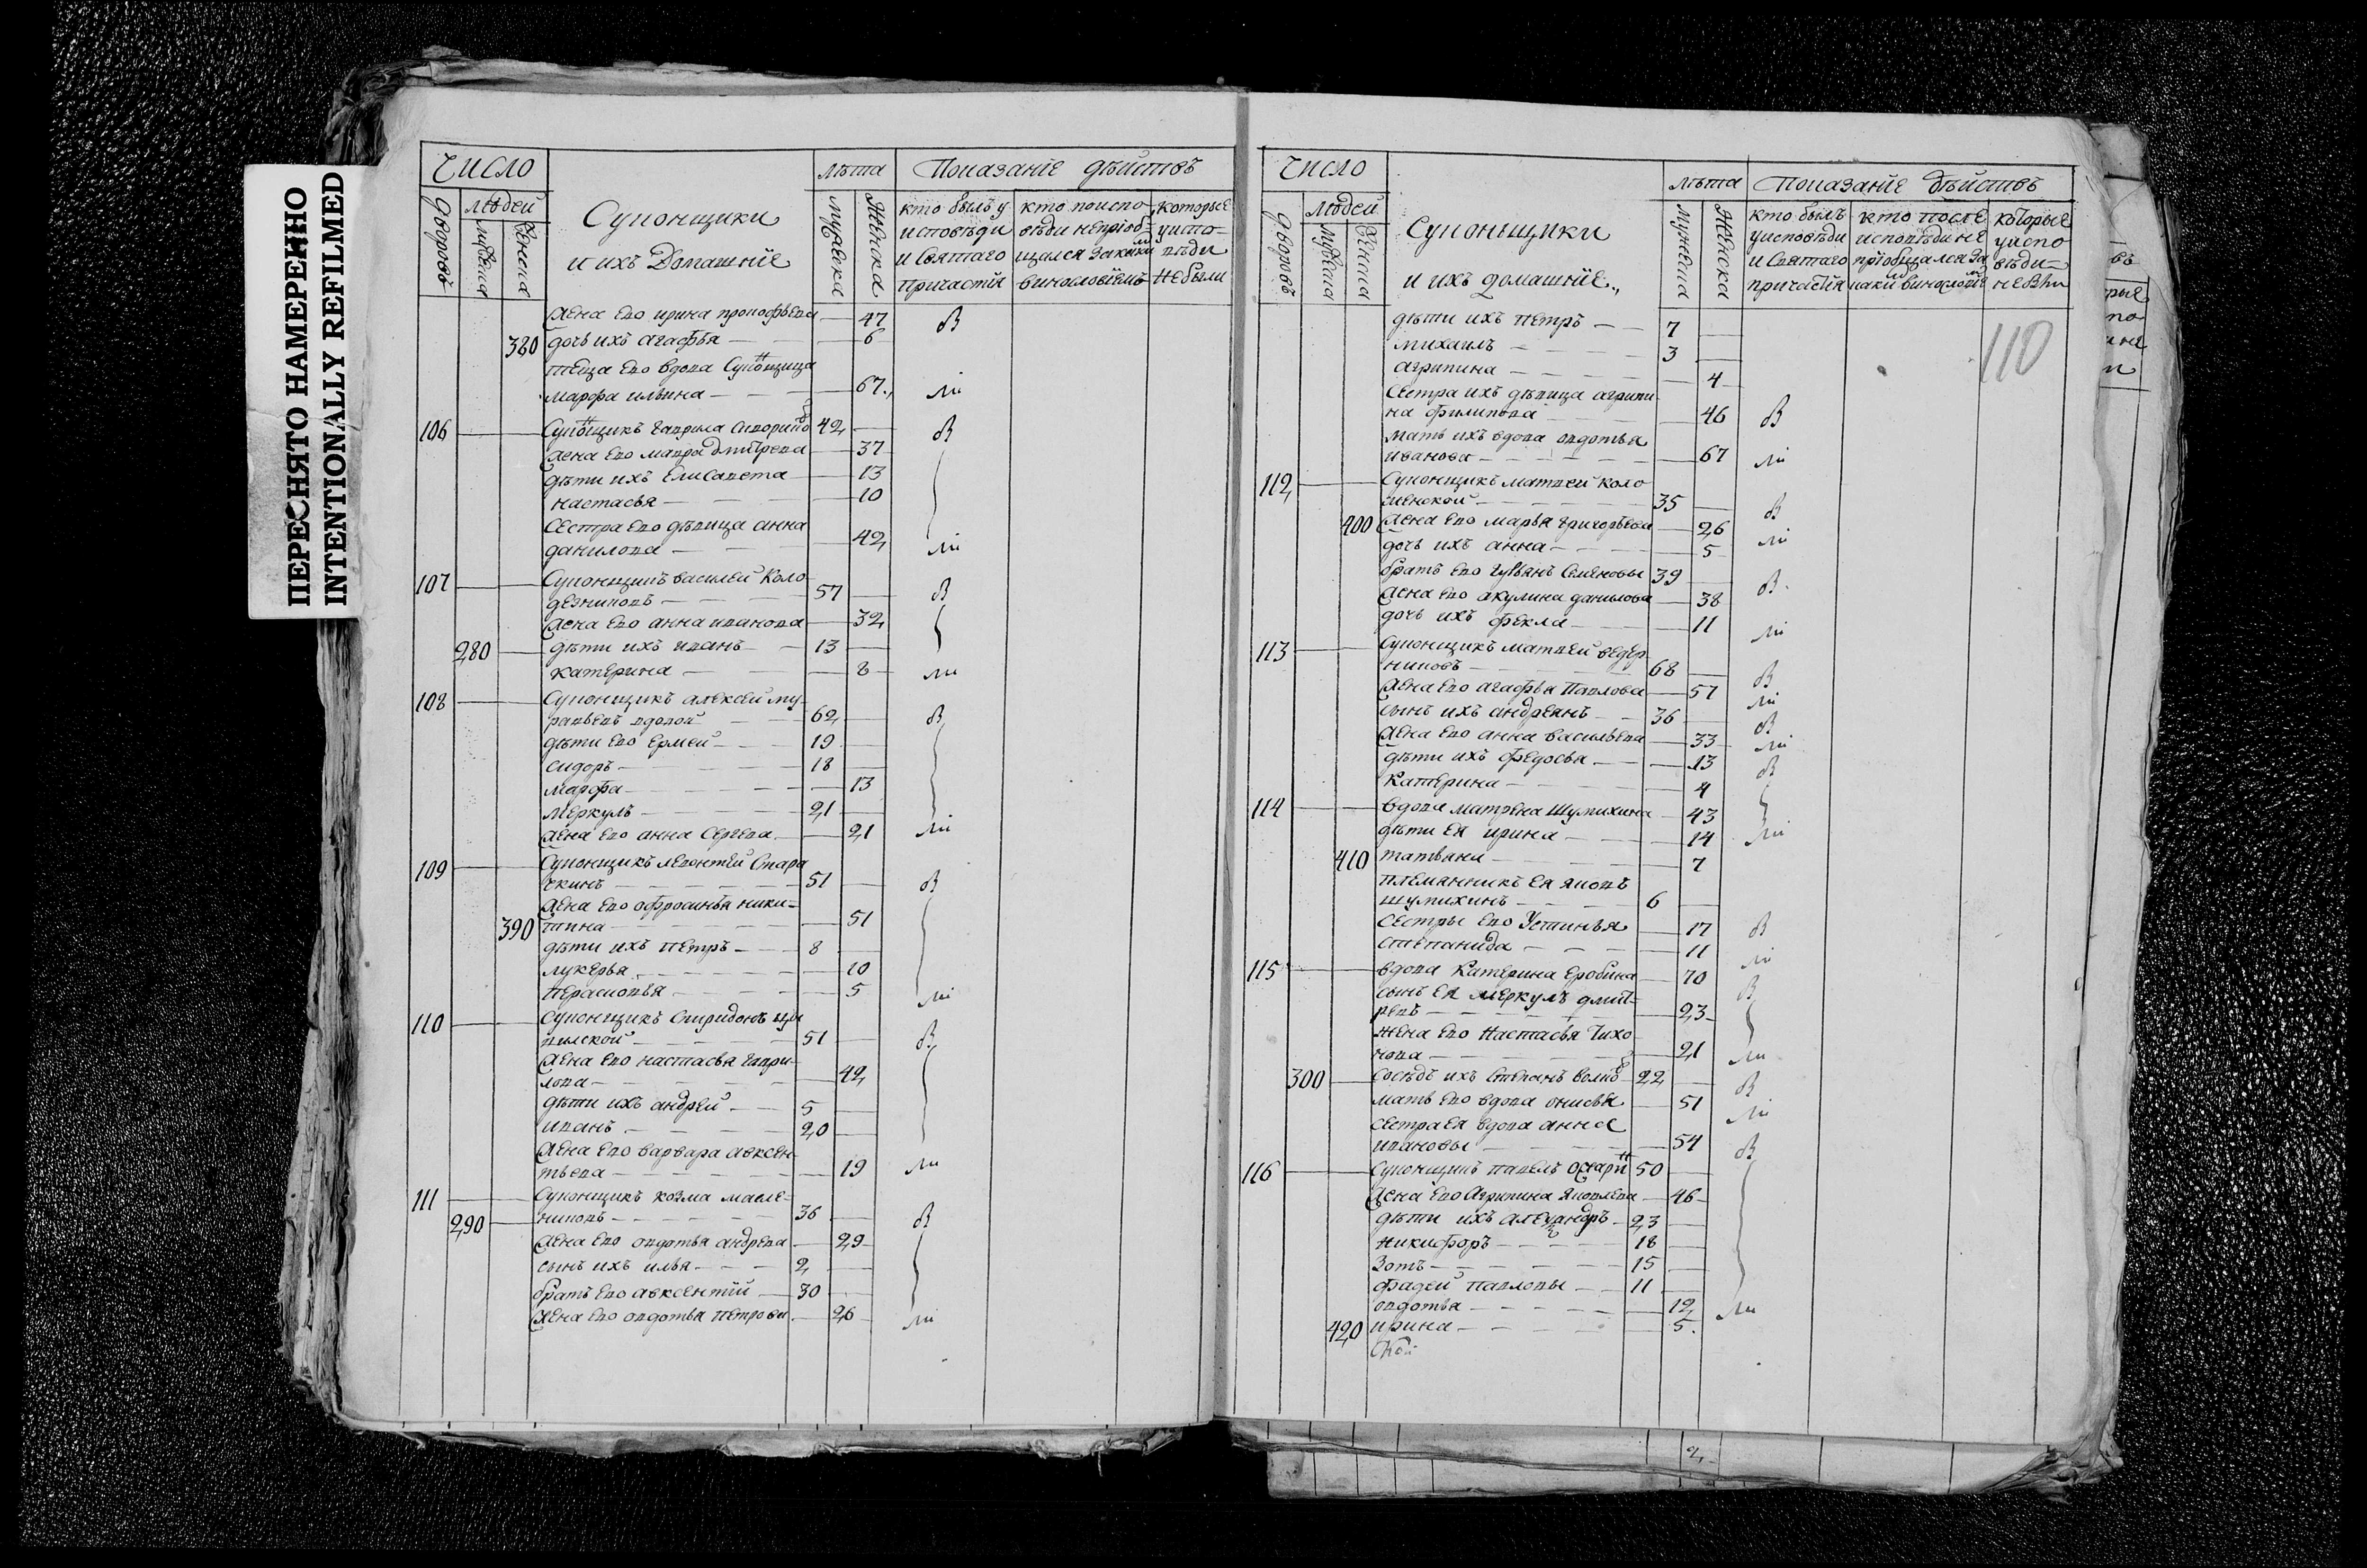 ПЕРЕСНЯТО НАМЕРЕННО
INTENTIONALLY REFILMED
Число
Дворовъ
людей
мужска
женска
Суконщики
и ихъ Домашнїе
лѣта
мужеска
Женска
Показанїе дѣйствъ
кто былъ у
исповѣди
и Святаго
причастїя
кто испо
вѣди непрїоб
щался
винословїемъ
которые
уиспо
вѣди
небыли
жена ево ирина прокофьева 47 В
380 дочь ихъ агафья 6
теща ево вдова Суконщица
марфа ильина 67 ли
106 Суконщикъ гаврила 42 В
жена ево мавра дмитрева 37
дѣти ихъ Елисавета 13
настасья 10
сестра ево дѣвица анна
данилова 42 ли
107 Суконщикъ василей Коло
дезниковъ 57 В
жена ево анна иванова 32
280 дѣти ихъ иванъ 13
катерина 8 ли
108 Суконщикъ алексей му
равьевъ вдовой 62 В
дѣти ево Ермей 19
сидоръ 18
марфа 13
меркулъ 21
жена ево анна Сергева 21 ли
109 Суконщикъ леонтей Стара
чкинъ 51 В
жена ево офросинья ники
390 тина 51
дѣти ихъ петръ 8
лукерья 10
перасковья 5 ли
110 Суконщикъ Спиридонъ
51 В
жена ево настасья гаври
лова 42
дѣти ихъ андрей 5
иванъ 20
жена ево варвара авксен
тьева 19 ли
111 Суконщикъ козма масле
290 никовъ 36 В
жена ево овдотья андрева 29
сынъ ихъ илья 2
братъ ево авксентїй 30
жена ево овдотья петрова 26 ли
Число
Дворовъ
людей
мужска
женска
Суконщики
и ихъ домашнїе
лѣта
мужеска
Женска
Показанїе дѣйствъ
кто былъ
уисповѣди
и Святаго
причастїя
кто после
исповѣди не
прїобщался за
которые
уиспо
вѣди
110
дѣти ихъ петръ 7
михаилъ 3
агрипина 4
сестра ихъ дѣвица агрипи
на филипова 46 В
мать ихъ вдова овдотья
иванова 67 ли
112 Суконщикъ матвей Коло
менской 35 В
400 жена ево марья григорьева 26
дочь ихъ анна 5 ли
братъ ево гурьянъ Семеновы 39 В
жена ево акулина данилова 38
дочь ихъ фекла 11 ли
113 Суконщикъ матвей ведер
никовъ 68 В
жена ево агафья Павлова 57 ли
сынъ ихъ андреянъ 36 В
жена ево анна васильева 33 ли
дѣти ихъ федосья 13 В
катерина 4
114 вдова матрена Шумихина 43
дѣти ея ирина 14 ли
410 татьяна 7
племянникъ ея яковъ
шумихинъ 6
сестры ево Устинья 17 В
степанида 11 ли
115 вдова Катерина Еробина 70 В
сынъ ея меркулъ дмит
ревъ 23
жена ево Настасья Тихо
нова 21 ли
300 сосѣдъ ихъ степанъ 22 В
мать ево вдова онисья 51 ли
сестра ея вдова анна
ивановы 54 В
116 Суконщикъ павелъ 50
жена ево Агрипина Яковлева 46
дѣти ихъ александръ 23
никифоръ 18
Зотъ 15
фадей Павловы 11
овдотья 12 ли
420 ирина 5
2